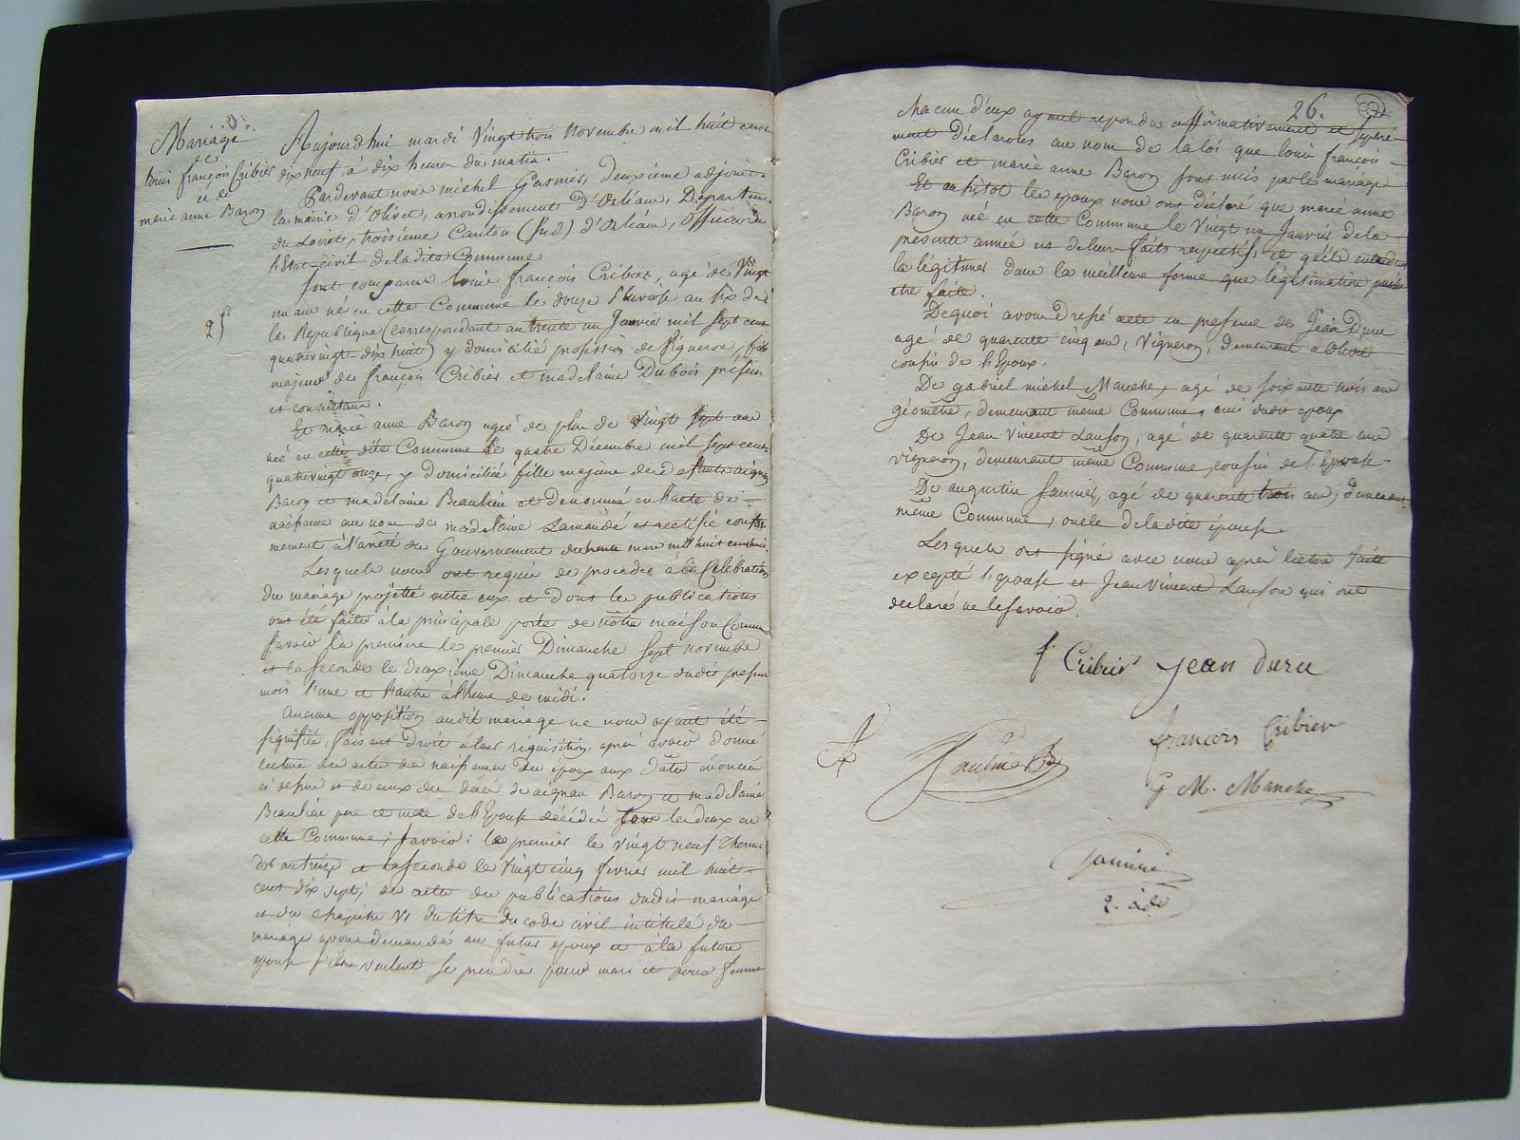 Mariage
de
Louis françois Cribier
et de
marie anne Baron
25
Aujourd'hui mardi Vingt trois Novembre mil huit cent
dix neuf à dix heures du matin.
Pardevant nous michel deuxième adjoint a
la mairie d'Olivet, arrondissement d'Orléans, Départem.
du Loiret, troisième Canton (Sud) d'Orléans, Officier de
l'Etat-civil de la dite Commune
Sont comparus Louis françois Cribier, agé de Vingt
un ans né en cette Commune le douze Pluviose an six de
la République (correspondant au trente un Janvier mil sept cent
quatrevingt dix huit) y domicilié profession de Vigneron, fils
majeur de françois Cribier et madelaine Dubois présens
et consentans.
Et marie anne Baron agée de plus de vingt sept ans
née en cette dite Commune le quatre Décembre mil sept cent
quatrevingt onze, y domiciliée fille majeure de defunts aignan
Baron et madelaine Beaulieu et denommé en l'acte de
naissance au nom de madelaine Lamandé et rectifié confor
mement à l'arrêté du Gouvernement du trente mars mil huit cent huit.
Lesquels nous ont requis de procéder à la Célébration
du mariage projetté entre eux et dont les publications
ont été faites à la principale porte de nôtre maison Commune
Savoir la première le premier Dimanche sept novembre
et la seconde le deuxième Dimanche quatorze dudit present
mois l'une et l'autre à l'heure de midi.
Aucune opposition audit mariage ne nous ayant été
signifiée, faisant droit à leur réquisition, après avoir donné
lecture des actes de naissance des époux aux dates énoncées
ci dessus et de ceux du décès de aignan Baron et madelaine
Beaulieu pere et mere de l'Epouse décédés tous les deux en
cette Commune; Savoir: le premier le vingt neuf Thermi
dor an treize et la seconde le Vingt cinq fevrier mil huit
cent dix sept; des actes des publications dudit mariage
et du chapitre VI du titre du code civil intitulé du
mariage avons demandé au futur époux et à la future
épouse s'ils veulent se prendre pour mari et pour femme
26.
chacun d'eux ayant répondu affirmativement et séparé-
ment déclarons au nom de la loi que Louis françois
Cribier et marie anne Baron sont unis par le mariage
Et aussitot les époux nous ont déclaré que marie anne
Baron né en cette Commune le Vingt un Janvier de la
présente année est de leurs faits respectifs, ce qu'ils entendent
la légitimer dans la meilleure forme que légitimation puisse
etre faite.
De quoi avons dressé acte en présence de Jean Duru
agé de quarente cinq ans, Vigneron, demeurant à Olivet
cousin de l'Epoux.
De gabriel michel Manche, agé de soixante trois ans
géomètre, demeurant même Commune, ami dudit époux
De Jean Vincent Lanson, agé de quarente quatre ans
vigneron, demeurant même Commune, cousin de l'épouse
De augustin Jaunié, agé de quarente trois ans, demeurant
même Commune, oncle de la dite épouse.
Lesquels ont signé avec nous après lecture faite
excepté l'épouse et Jean Vincent Lanson qui ont
declaré ne le savoir.
f Cribier Jean duru
francois Cribier
G M. Manche